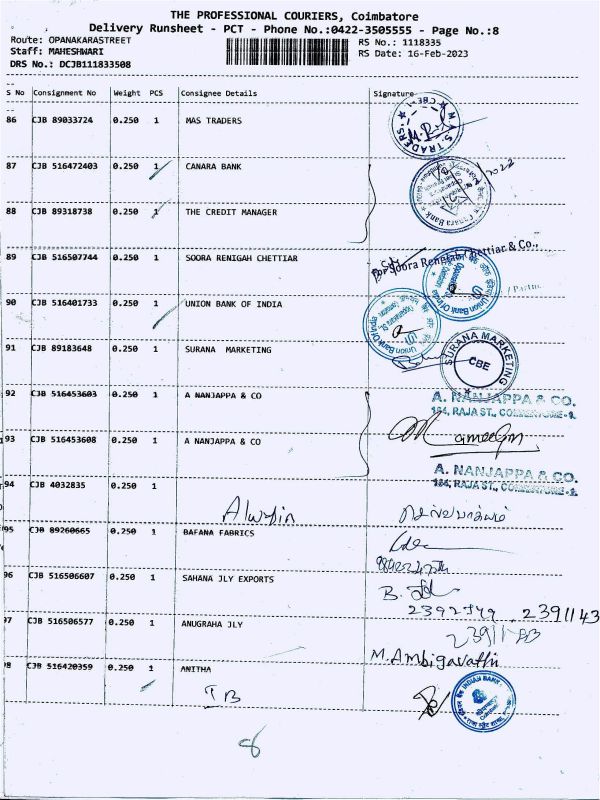 THE PROFESSIONAL COURIERS, Coimbatore
Delivery Runsheet - PCT - Phone No.:0422-3505555 - Page No.:8
Route: OPANAKARASTREET
RS No.: 1118335
Staff: MAHESHWARI
RS Date: 16-Feb-2023
DRS No.: DCJB111833508
S No Consignment No Weight PCS Consignee Details Signature
86 CJB 89033724 0.250 1 MAS TRADERS
87 CJB 516472403 0.250 1 CANARA BANK
88 CJB 89318738 0.250 1 THE CREDIT MANAGER
89 CJB 516507744 0.250 1 SOORA RENIGAH CHETTIAR
for Soora Rengiah Chettiar & Co.,
90 CJB 516401733 0.250 1 UNION BANK OF INDIA
Union Bank Of India
Union Bank Of India
91 CJB 89183648 0.250 1 SURANA MARKETING
SURANA MARKETING
CBE
92 CJB 516453603 0.250 1 A NANJAPPA & CO
A. NANJAPPA & CO.
184, RAJA ST., COIMBATORE-1.
93 CJB 516453608 0.250 1 A NANJAPPA & CO
A. NANJAPPA & CO.
184, RAJA ST., COIMBATORE-1.
94 CJB 4032835 0.250 1
95 CJB 89260665 0.250 1 BAFANA FABRICS
96 CJB 516506607 0.250 1 SAHANA JLY EXPORTS
2392749, 2391143
97 CJB 516506577 0.250 1 ANUGRAHA JLY
M.Ambigavathi
98 CJB 516420359 0.250 1 ANITHA
IB
INDIAN BANK
8